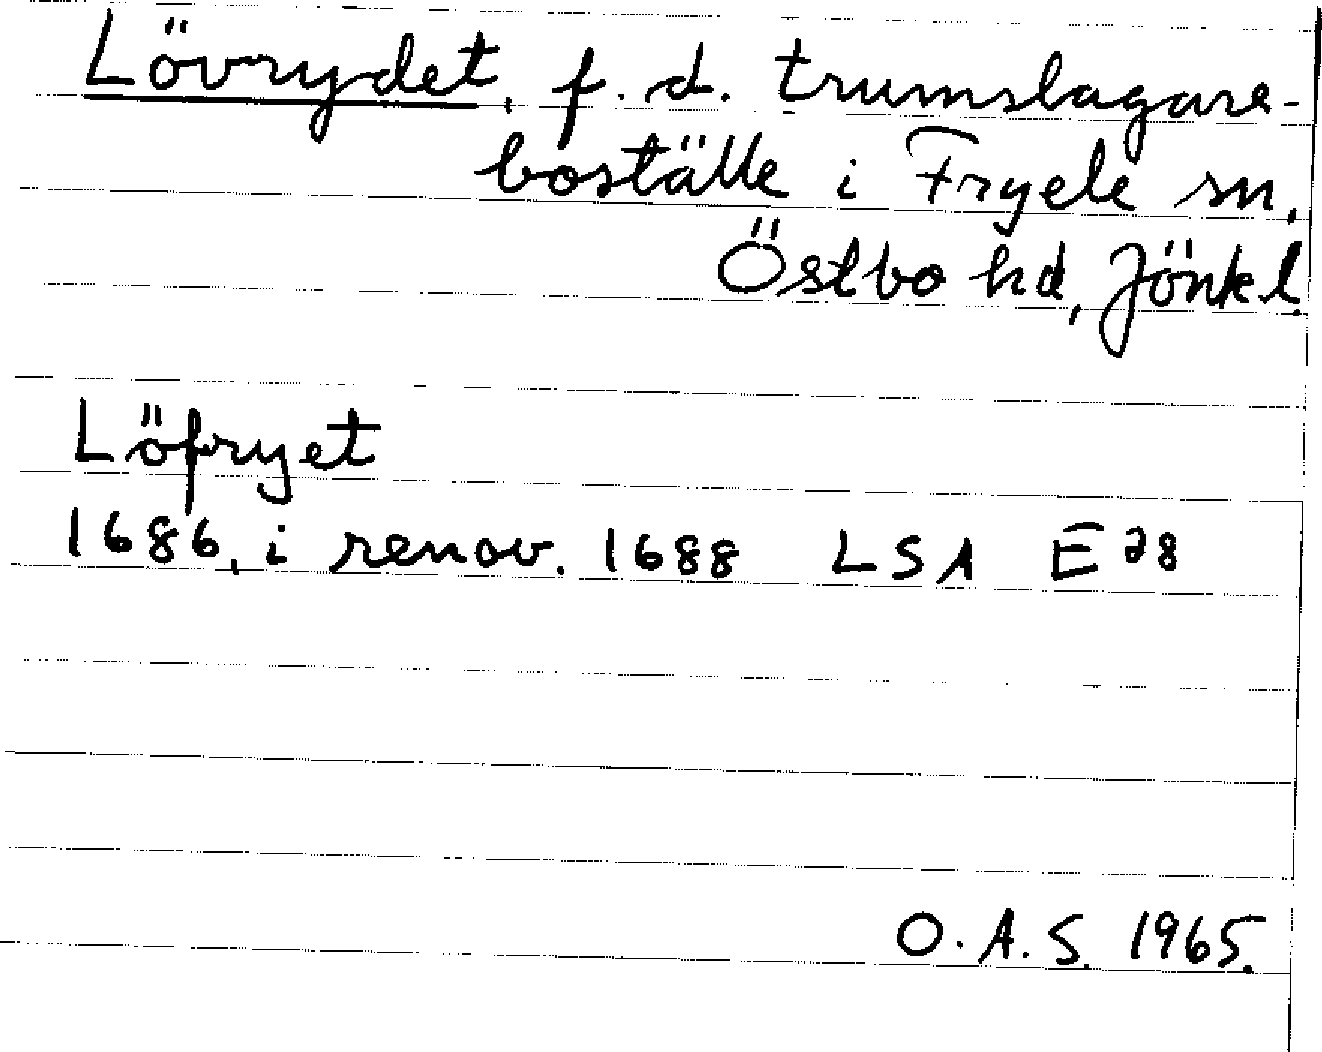 Lövrydet, f. d. trumslagare-
boställe i Fryele sn,
Östbo hd, Jönk l.
Löfryet
1686, i renov. 1688 LSA E28
O.A.S. 1965.